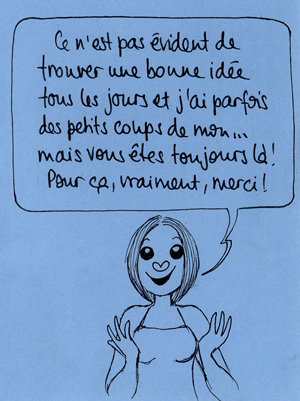 Ce n'est pas évident de
trouver une bonne idée
tous les jours et j'ai parfois
des petits coups de mou...
mais vous êtes toujours là!
Pour ça, vraiment, merci!